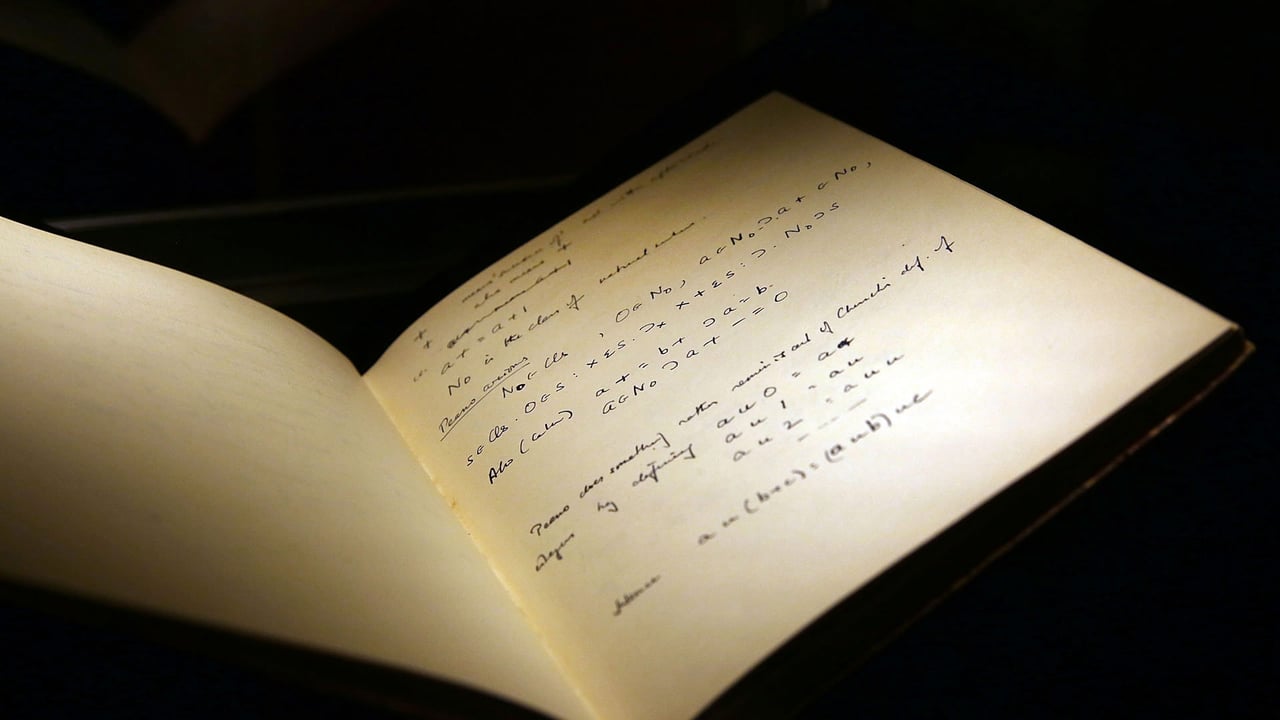 +
the mean +
a+ = a+1
N₀ is the class of natural numbers.
Peano axioms
N₀ ϵ Cls , 0 ϵ N₀ , a ϵ N₀ .⊃. a+ ϵ N₀ ,
s ϵ Cls . 0 ϵ s : x ϵ s .⊃x x+ ϵ s : ⊃. N₀ ⊃ s
Also a+ = b+ ⊃ a = b.
a ϵ N₀ ⊃ a+ – = 0
Peano does something rather reminiscent of Church's def. of
by defining a u 0 = a
a u 1 = a u
a u 2 = a u u
– – –
Hence a u (b+c) = (a u b) u c